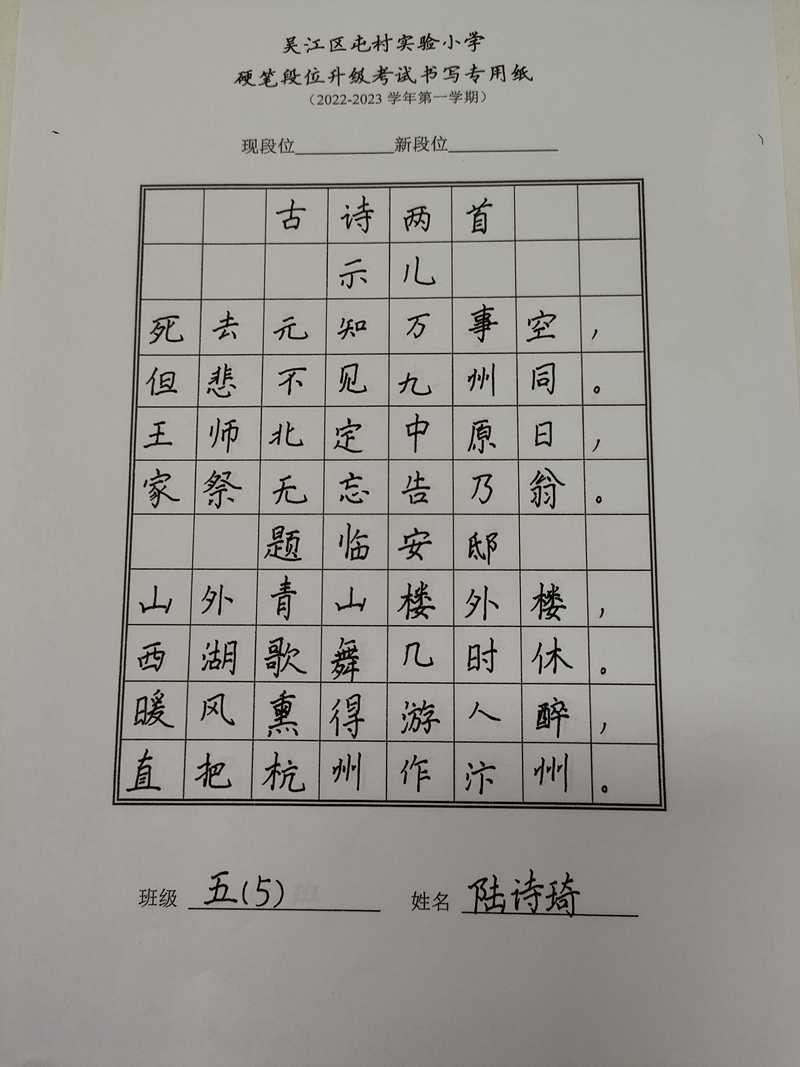 吴江区屯村实验小学
硬笔段位升级考试书写专用纸
（2022-2023 学年第一学期）
现段位__________新段位__________
古诗两首
示儿
死去元知万事空，
但悲不见九州同。
王师北定中原日，
家祭无忘告乃翁。
题临安邸
山外青山楼外楼，
西湖歌舞几时休。
暖风熏得游人醉，
直把杭州作汴州。
班级 五(5) 姓名 陆诗琦